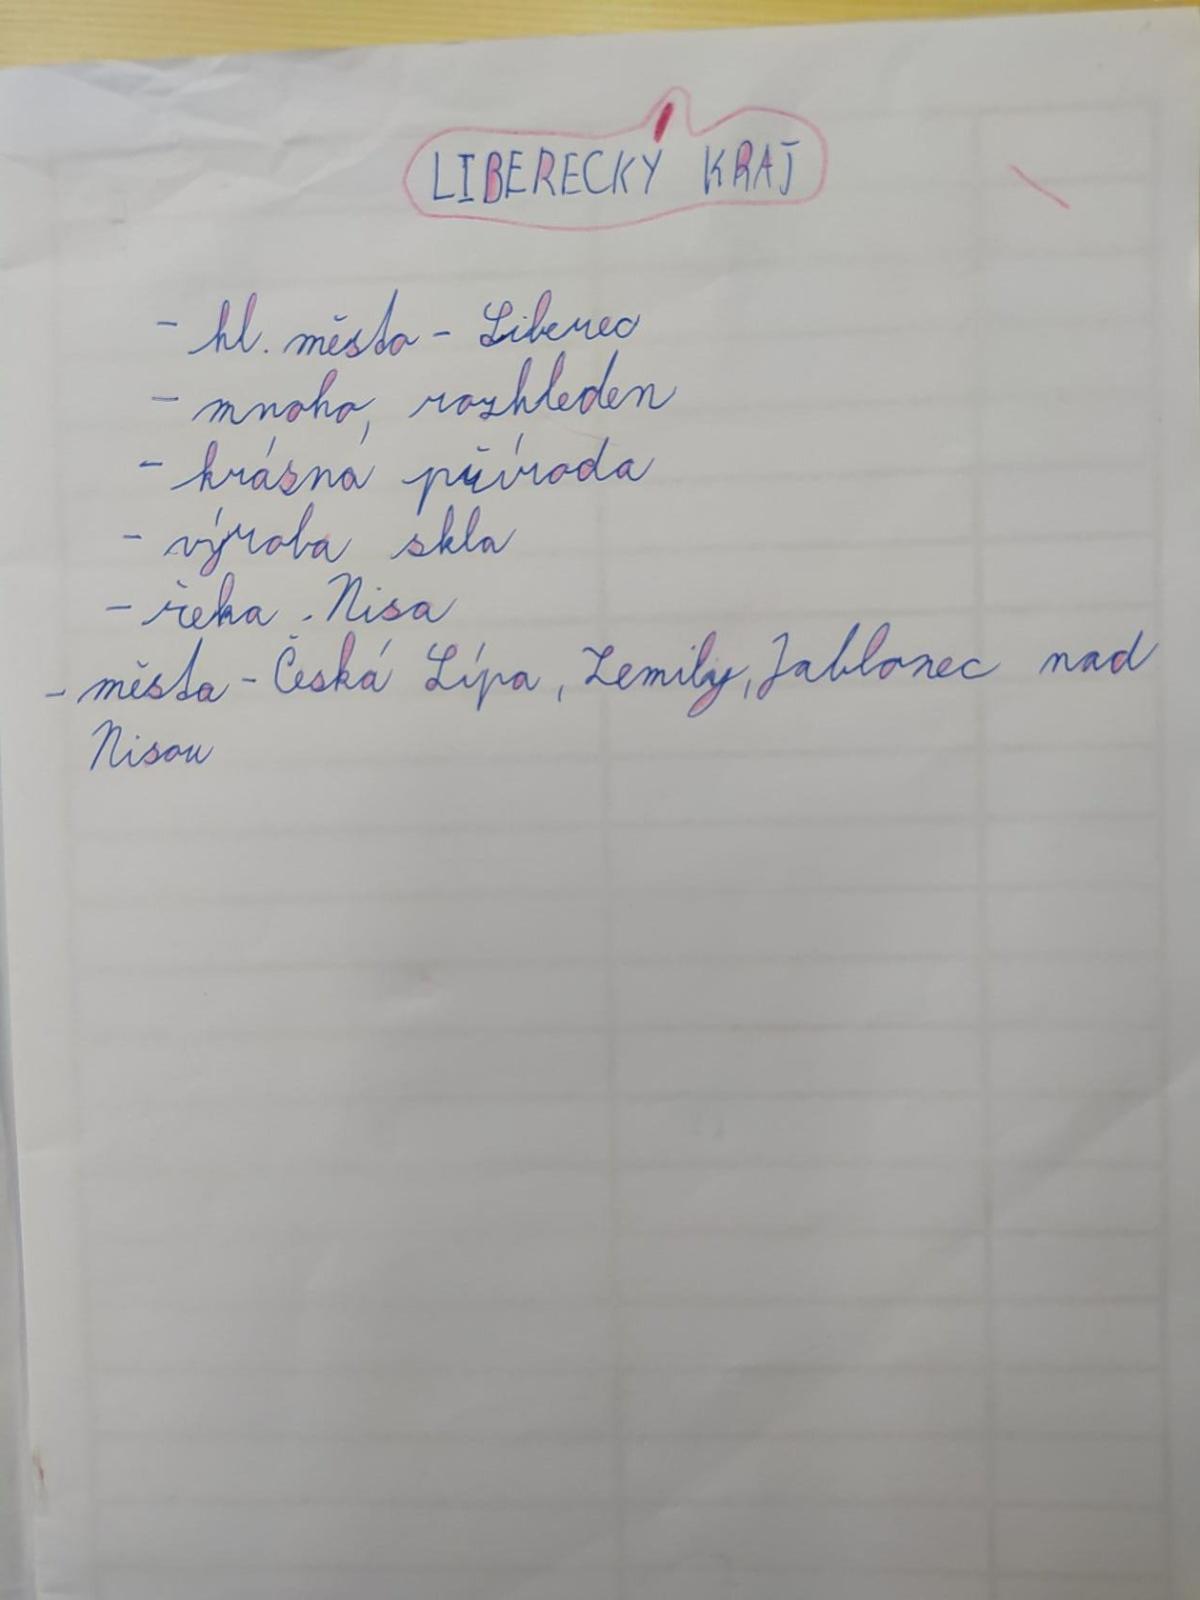 LIBERECKÝ KRAJ
- hl. město - Liberec
- mnoho rozhleden
- krásná příroda
- výroba skla
- řeka - Nisa
- města - Česká Lípa, Semily, Jablonec nad
Nisou